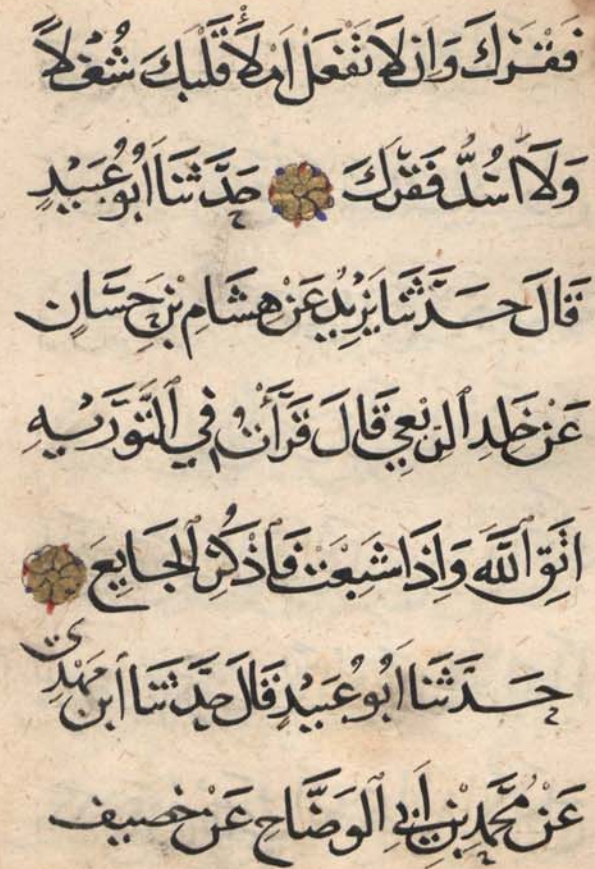 فَقْرَكَ وَاِن لَا تَفْعَلْ اَمْلَأْ قَلْبَكَ شُغْلًا
وَلَا اَسُدُّ فَقْرَكَ حَدَّثَنَا اَبُو عُبَيْدٍ
قَالَ حَدَّثَنَا يَزِيْدُ عَنْ هِشَامِ بْنِ حَسَّانٍ
عَنْ خٰلِدِ ٱلرَّبْعِي قَالَ قَرَأْتُ فِي ٱلتَّوْرٰيةِ
اتَّقِ ٱللَّهَ وَاِذَا شَبِعْتَ فَاذْكُرِ ٱلْجَايِعَ
حَدَّثَنَا اَبُو عُبَيْدٍ قَالَ حَدَّثَنَا ٱبْنُ مَهْدِيٍّ
عَنْ مُحَمَّدِ بْنِ اَبِي ٱلْوَضَّاحِ عَنْ خُصَيف